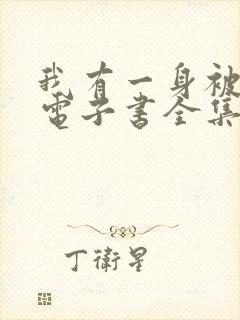 我有一身被
電子書全集
丁衛星